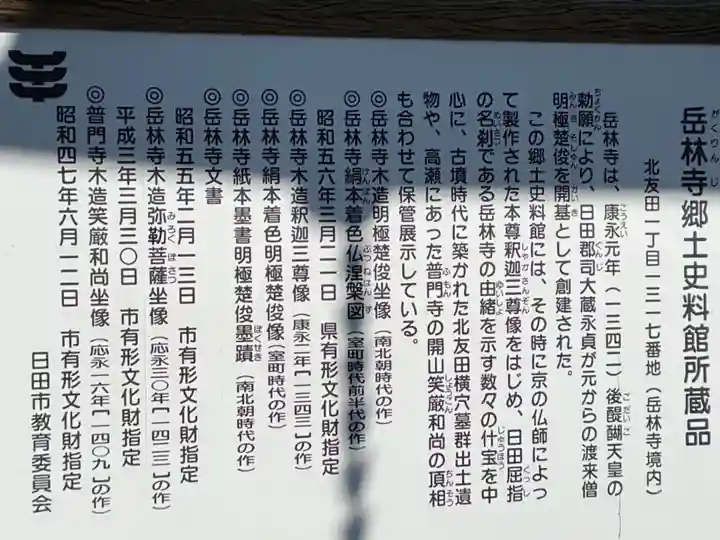 岳林寺郷土史料館所蔵品
がくりんじ
北友田一丁目一三一七番地（岳林寺境内）
岳林寺は、康永元年（一三四二）後醍醐天皇の
こうえい
ごだいご
勅願により、日田郡司大蔵永貞が元からの渡来僧
ちょくがん
ぐんじ
明極楚俊を開基として創建された。
みんきそしゅん
かいき
この郷土史料館には、その時に京の仏師によっ
て製作された本尊釈迦三尊像をはじめ、日田屈指
しゃかさんぞん
くっし
の名刹である岳林寺の由緒を示す数々の什宝を中
めいさつ
ゆいしょ
じゅうほう
心に、古墳時代に築かれた北友田横穴墓群出土遺
物や、高瀬にあった普門寺の開山笑厳和尚の頂相
ふもん
しょうごん
ちんそう
も合わせて保管展示している。
◎岳林寺木造明極楚俊坐像（南北朝時代の作）
◎岳林寺絹本着色仏涅槃図（室町時代前半代の作）
けんぽん
ぶつねはんず
昭和五六年三月三一日　県有形文化財指定
◎岳林寺木造釈迦三尊像（康永二年［一三四三］の作）
◎岳林寺絹本着色明極楚俊像（室町時代の作）
◎岳林寺紙本墨書明極楚俊墨蹟（南北朝時代の作）
ぼくせき
◎岳林寺文書
昭和五五年二月一三日　市有形文化財指定
◎岳林寺木造弥勒菩薩坐像（応永三〇年［一四二三］の作）
みろくぼさつ
平成三年三月三〇日　市有形文化財指定
◎普門寺木造笑厳和尚坐像（応永一六年［一四〇九］の作）
昭和四七年六月一二日　市有形文化財指定
日田市教育委員会